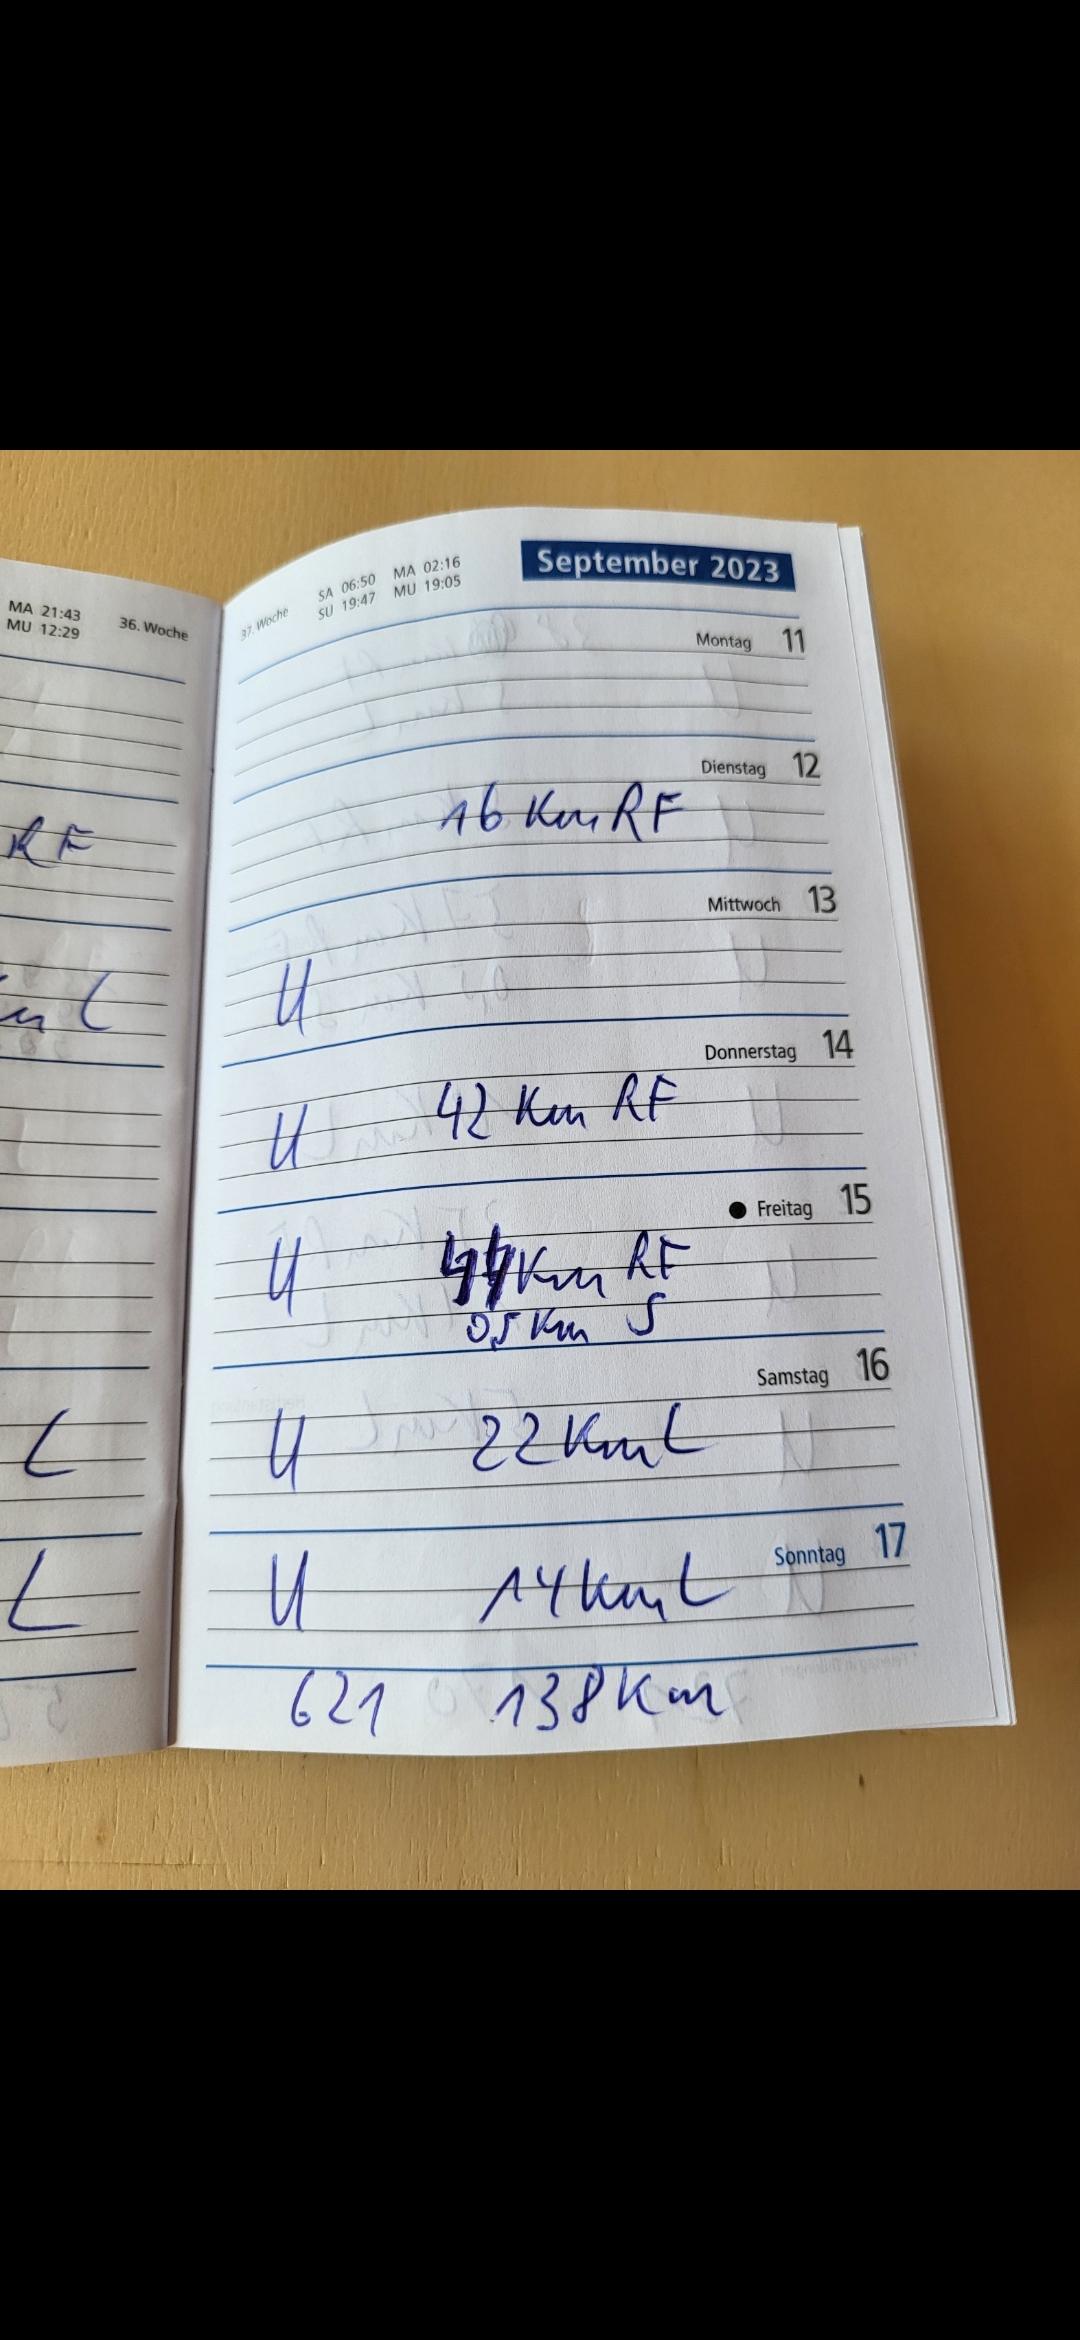 MA 21:43
MU 12:29
36. Woche
RF
L
L
L
37. Woche
SA 06:50 MA 02:16
SU 19:47 MU 19:05
September 2023
Montag 11
Dienstag 12
16 Km RF
Mittwoch 13
U
Donnerstag 14
42 Km RF
U
Freitag 15
U 44 Km RF
0,5 Km S
Samstag 16
U 22 Km L
Sonntag 17
U 14 Km L
621 138 Km